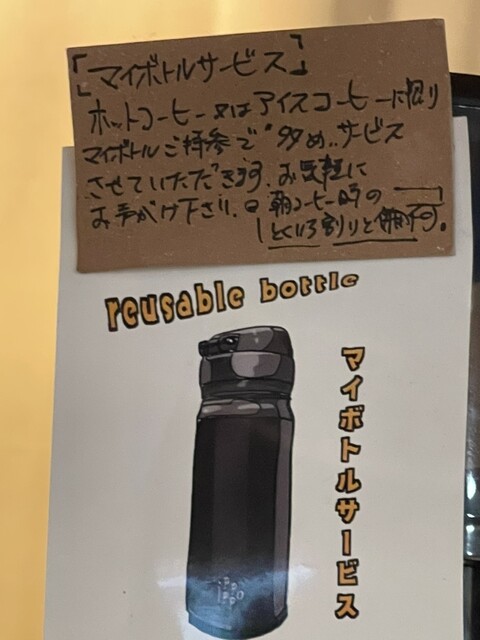 「マイボトルサービス」
ホットコーヒー又はアイスコーヒーに限り
マイボトルご持参で"多め"サービス
させていただきます。お気軽に
お声がけ下さい。
朝コーヒー時の
reusable bottle
マイボトルサービス
ippo